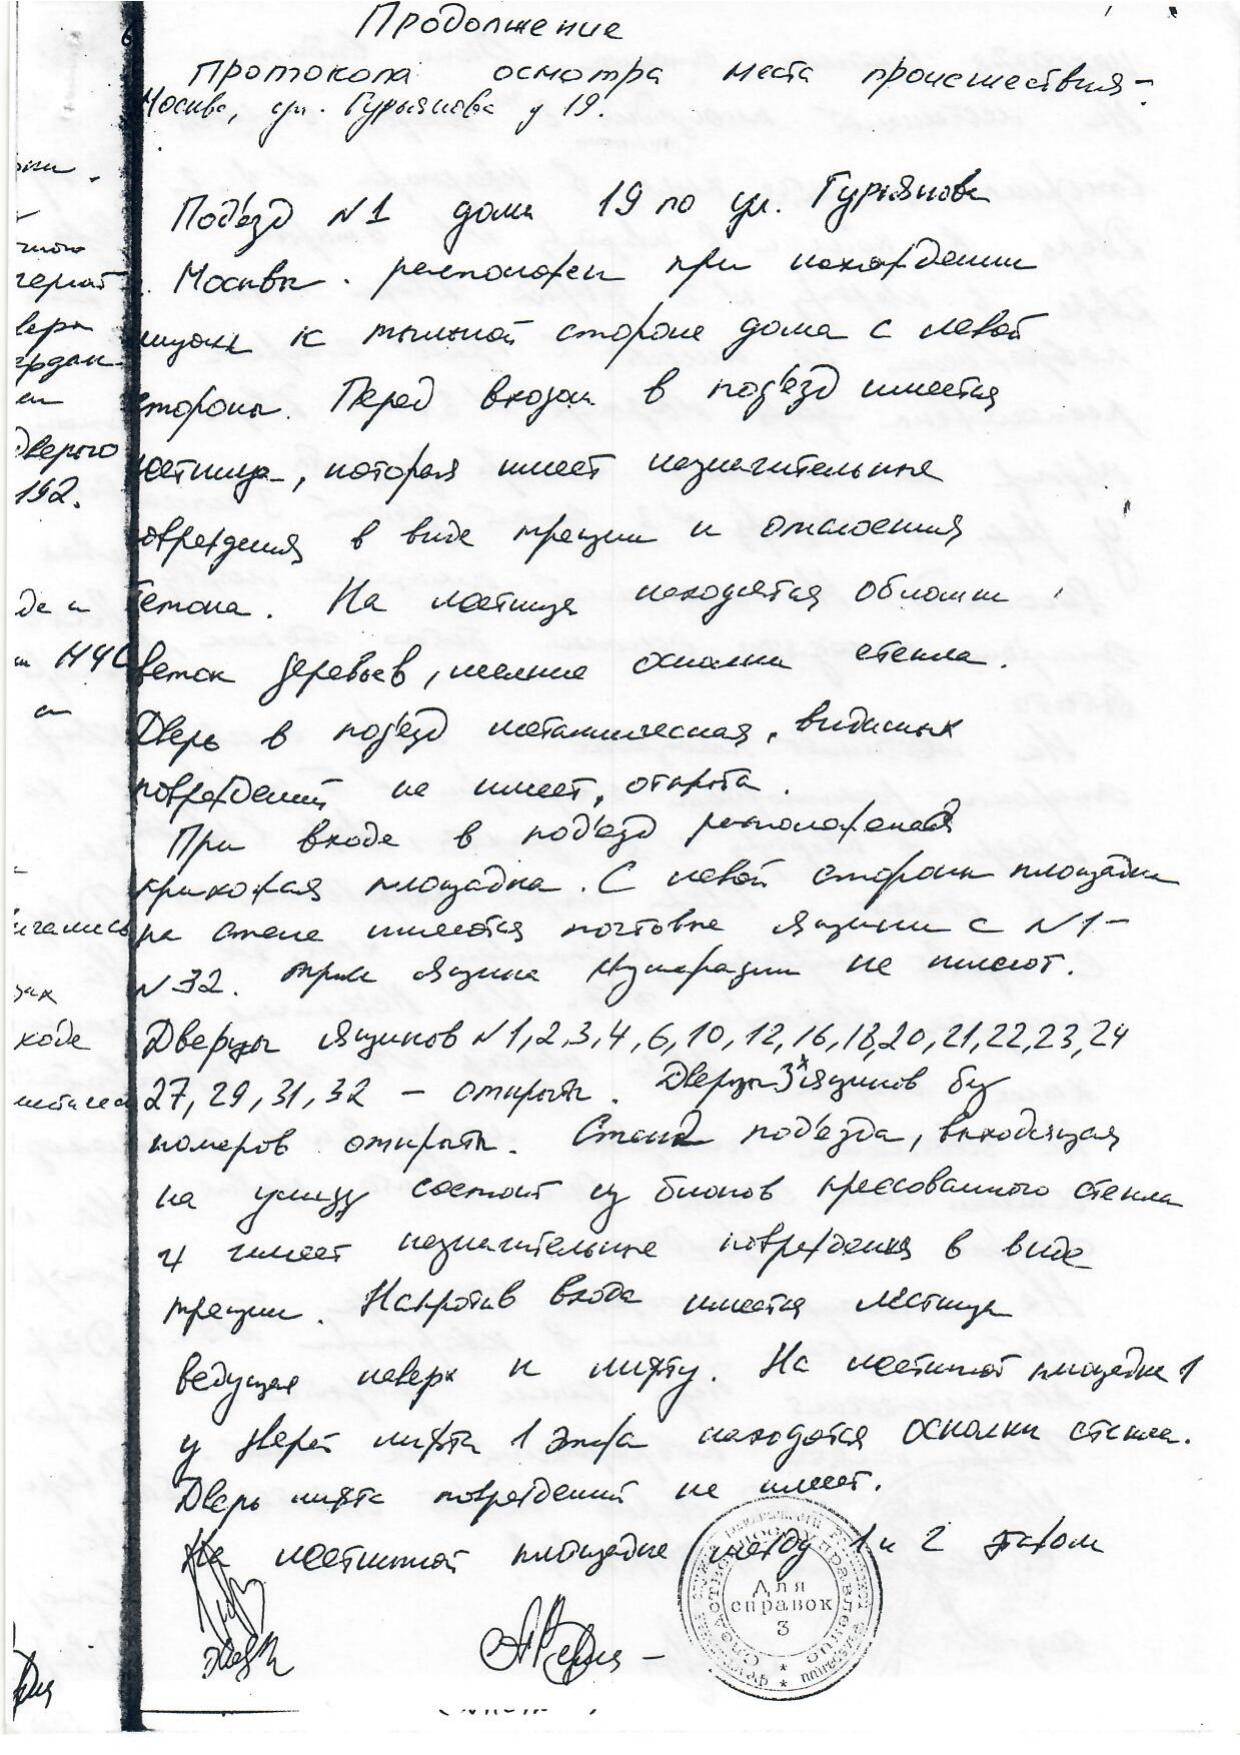 Продолжение
Протокола осмотра места происшествия -
Москва, ул. Гурьянова д 19.
Подъезд №1 дома 19 по ул. Гурьянова
г. Москвы. расположен при нахождении
лицом к тыльной стороне дома с левой
стороны. Перед входом в подъезд имеется
лестница, которая имеет незначительные
повреждения в виде трещин и отслоения
бетона. На лестнице находятся обломки
веток деревьев, мелкие осколки стекла.
Дверь в подъезд металлическая, видимых
повреждений не имеет, открыта.
При входе в подъезд расположена
прихожая площадка. С левой стороны площадки
на стене имеются почтовые ящики с №1-
№32. три ящика нумерации не имеют.
Дверцы ящиков №1,2,3,4,6,10,12,16,18,20,21,22,23,24
27,29,31,32 - открыты. Дверцы 3х ящиков без
номеров открыты. Стена подъезда, выходящая
на улицу состоит из блоков прессованного стекла
и имеет незначительные повреждения в виде
трещин. Напротив входа имеется лестница
ведущая наверх к лифту. На лестничной площадке 1
у дверей лифта 1 этажа находятся осколки стекла.
Дверь лифта повреждений не имеет.
На лестничной площадке между 1 и 2 этажом
Для
справок
3
Следственное управление
чного
верь
дверью
192.
де и
и МЧС
ходе